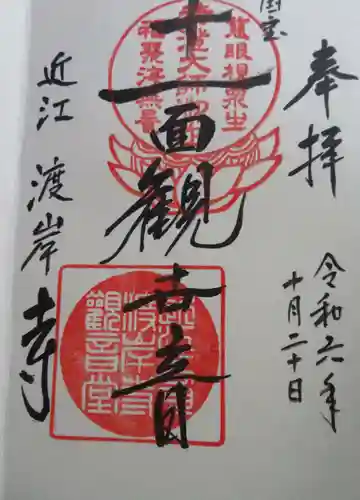 奉拝
令和六年
十月二十日
国宝
十一面観世音
近江 渡岸寺
慈眼視衆生
福聚海無量
渡岸寺
観音堂